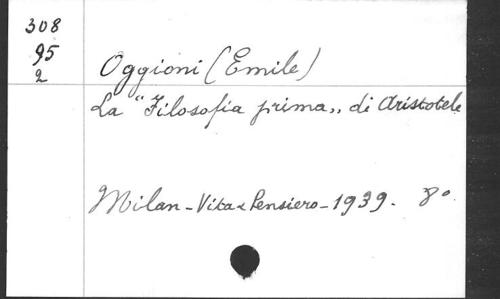 308
95
2
Oggioni (Emile)
La "Filosofia prima„ di Aristotele
Milan - Vita e Pensiero - 1939. 8º.